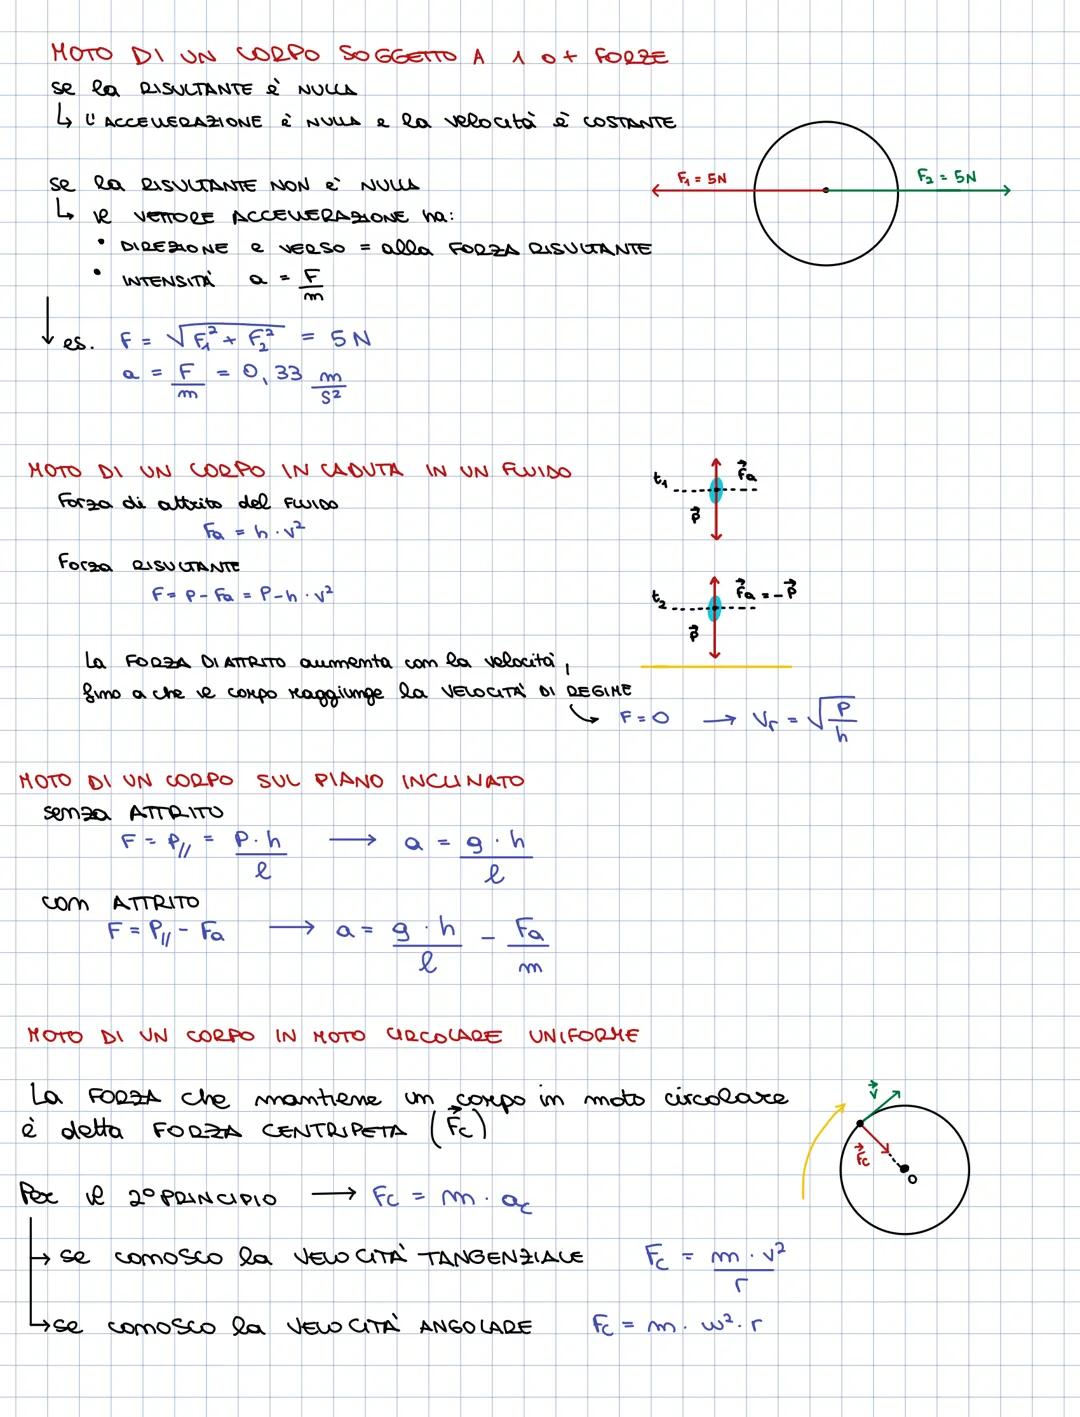 MOTO DI UN CORPO SOGGETTO A 1 o + FORZE
se la RISULTANTE è NULLA
↳ l'ACCELLERAZIONE è NULLA e la velocità è COSTANTE
F₁ = 5N
F₂ = 5N
se la RISULTANTE NON è NULLA
↳ il VETTORE ACCELLERAZIONE ha:
• DIREZIONE e VERSO = alla FORZA RISULTANTE
• INTENSITÀ a = F/m
↓ es. F = √(F₁² + F₂²) = 5 N
a = F/m = 0,33 m/s²
MOTO DI UN CORPO IN CADUTA IN UN FLUIDO
Forza di attrito del FLUIDO
Fa = h · v²
Forza RISULTANTE
F = P - Fa = P - h · v²
t₁
F⃗a
P⃗
t₂
F⃗a = -P⃗
P⃗
La FORZA DI ATTRITO aumenta con la velocità,
fino a che il corpo raggiunge la VELOCITÀ DI REGIME
↳ F = 0 → Vr = √(P/h)
MOTO DI UN CORPO SUL PIANO INCLINATO
senza ATTRITO
F = P// = P · h/l → a = g · h/l
con ATTRITO
F = P// - Fa → a = g · h/l - Fa/m
MOTO DI UN CORPO IN MOTO CIRCOLARE UNIFORME
La FORZA che mantiene un corpo in moto circolare
è detta FORZA CENTRIPETA (F⃗c)
v⃗
F⃗c
O
Per il 2° PRINCIPIO → Fc = m · ac
→ se conosco la VELOCITÀ TANGENZIALE Fc = m · v²/r
→ se conosco la VELOCITÀ ANGOLARE Fc = m · w² · r